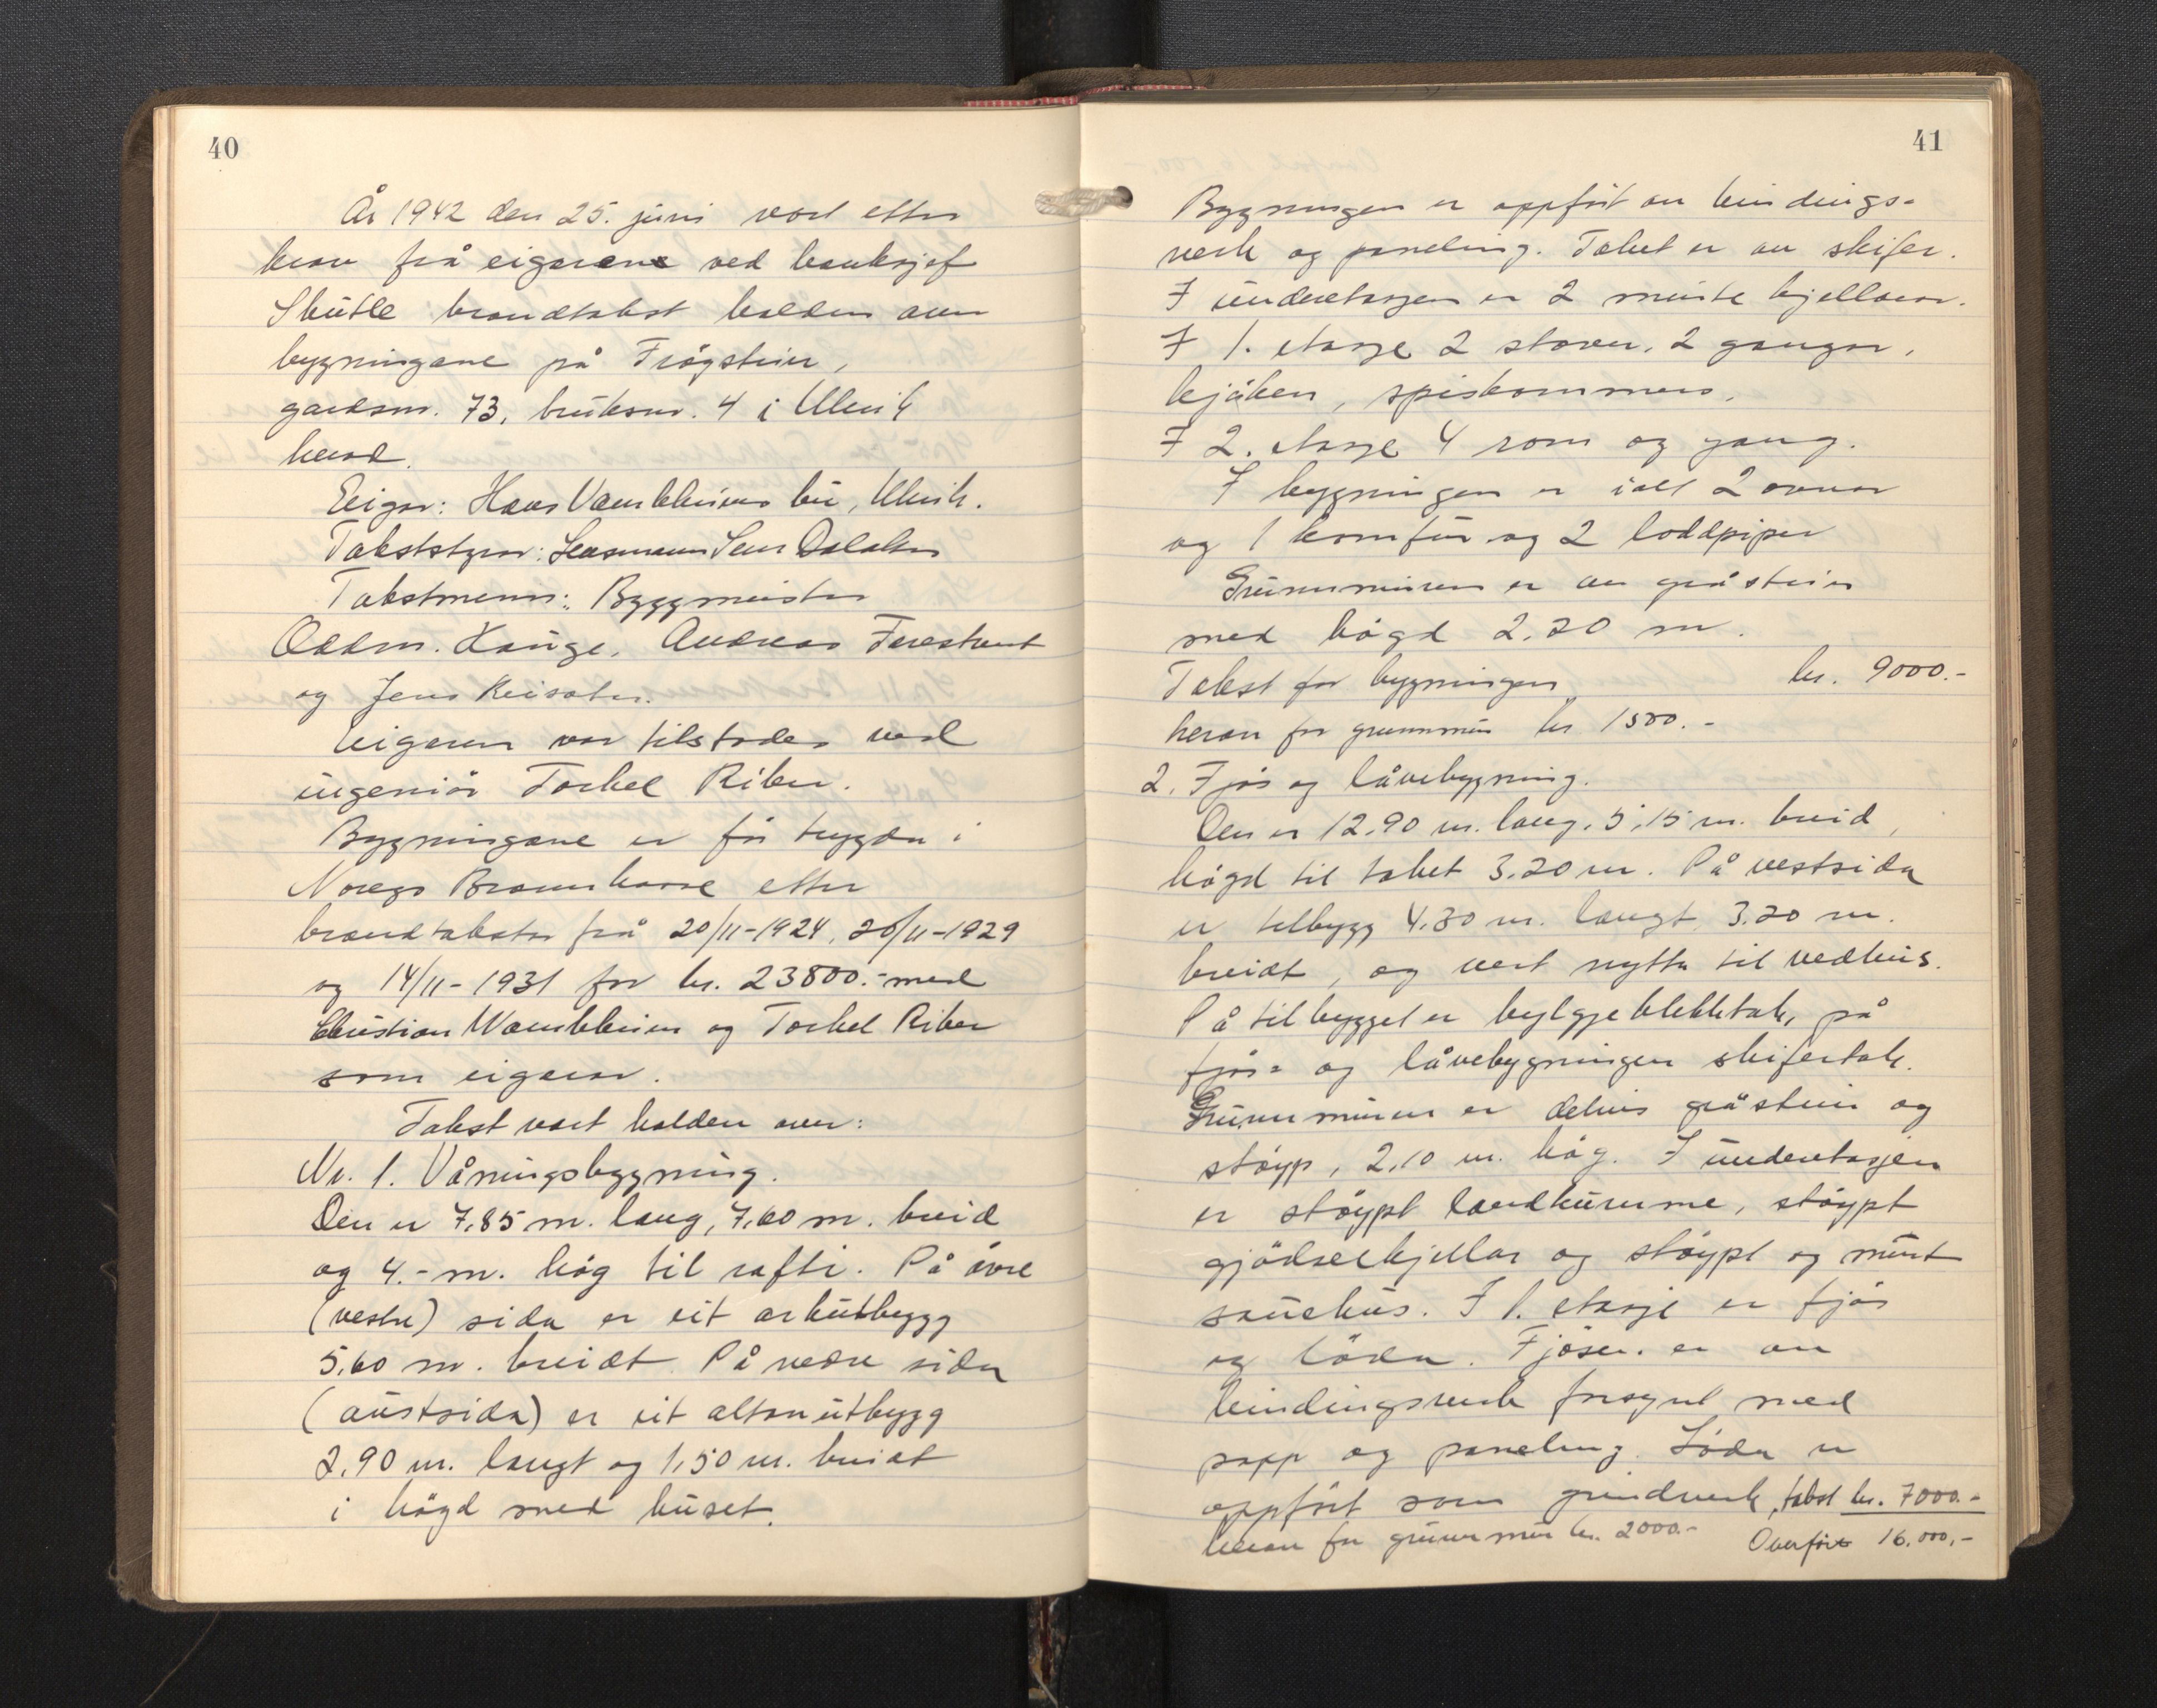 40
År 1942 den 25. juni vart etter
krav frå eigarane ved banksjef
Skutle brandtakst halden over
bygningane på Trøgstein,
gardsnr. 73, bruksnr. 4 i Ulvik
herad.
Eigar: Hans Vambheims bu, Ulvik.
Takststyrar: Lensmann
Takstmenn: Byggmeister
Oddm. Hauge, Andreas
og Jens
Eigaren var tilstades ved
ingeniør Torkel Riber.
Bygningane er før trygda i
Noregs Brannkasse etter
brandtakster frå 20/11-1924, 20/11-1929
og 14/11-1931 for kr. 23800.- med
Christian Wambheim og Torkel Riber
som eigarar.
Takst vart halden over:
Nr. 1. Våningsbygning.
Den er 7,85 m. lang, 7,60 m. breid
og 4.- m. høg til rafti. På øvre
(vestre) sida er eit arkutbygg
5,60 m. breidt. På nedre sida
(austsida) er eit altanutbygg
2,90 m. langt og 1,50 m. breidt
i høgd med huset.
41
Bygningen er oppført av bindings-
verk og paneling. Taket er av skifer.
I underetasjen er 2 murte kjellarar.
I 1. etasje 2 stover, 2 gangar,
kjøken, spiskammers.
I 2. etasje 4 rom og gang.
I bygningen er ialt 2 ovnar
og 1 komfur og 2 loddpiper
Grunnmuren er av gråstein
med høgd 2.20 m.
Takst for bygningen kr. 9000.-
herav for grunnmur kr 1500.-
2. Fjøs og låvebygning.
Den er 12,90 m. lang, 5,15 m. breid,
høgd til taket 3.20 m. På vestsida
er tilbygg 4.30 m. langt, 3.20 m.
breidt, og vert nytta til vedhus.
På tilbygget er bylgjeblekktak, på
fjøs- og låvebygningen skifertak.
Grunnmuren er delvis gråstein og
støyp, 2,10 m. høg. I underetasjen
er støypt landkumme, støypt
gjødselkjellar og støypt og murt
sauehus. I 1. etasje er fjøs
og løda. Fjøsen er av
bindingsverk forsynt med
papp og paneling. Løda er
oppført som grindverk, takst kr. 7000.-
herav for grunnmur kr. 2000.- Overført 16.000,-